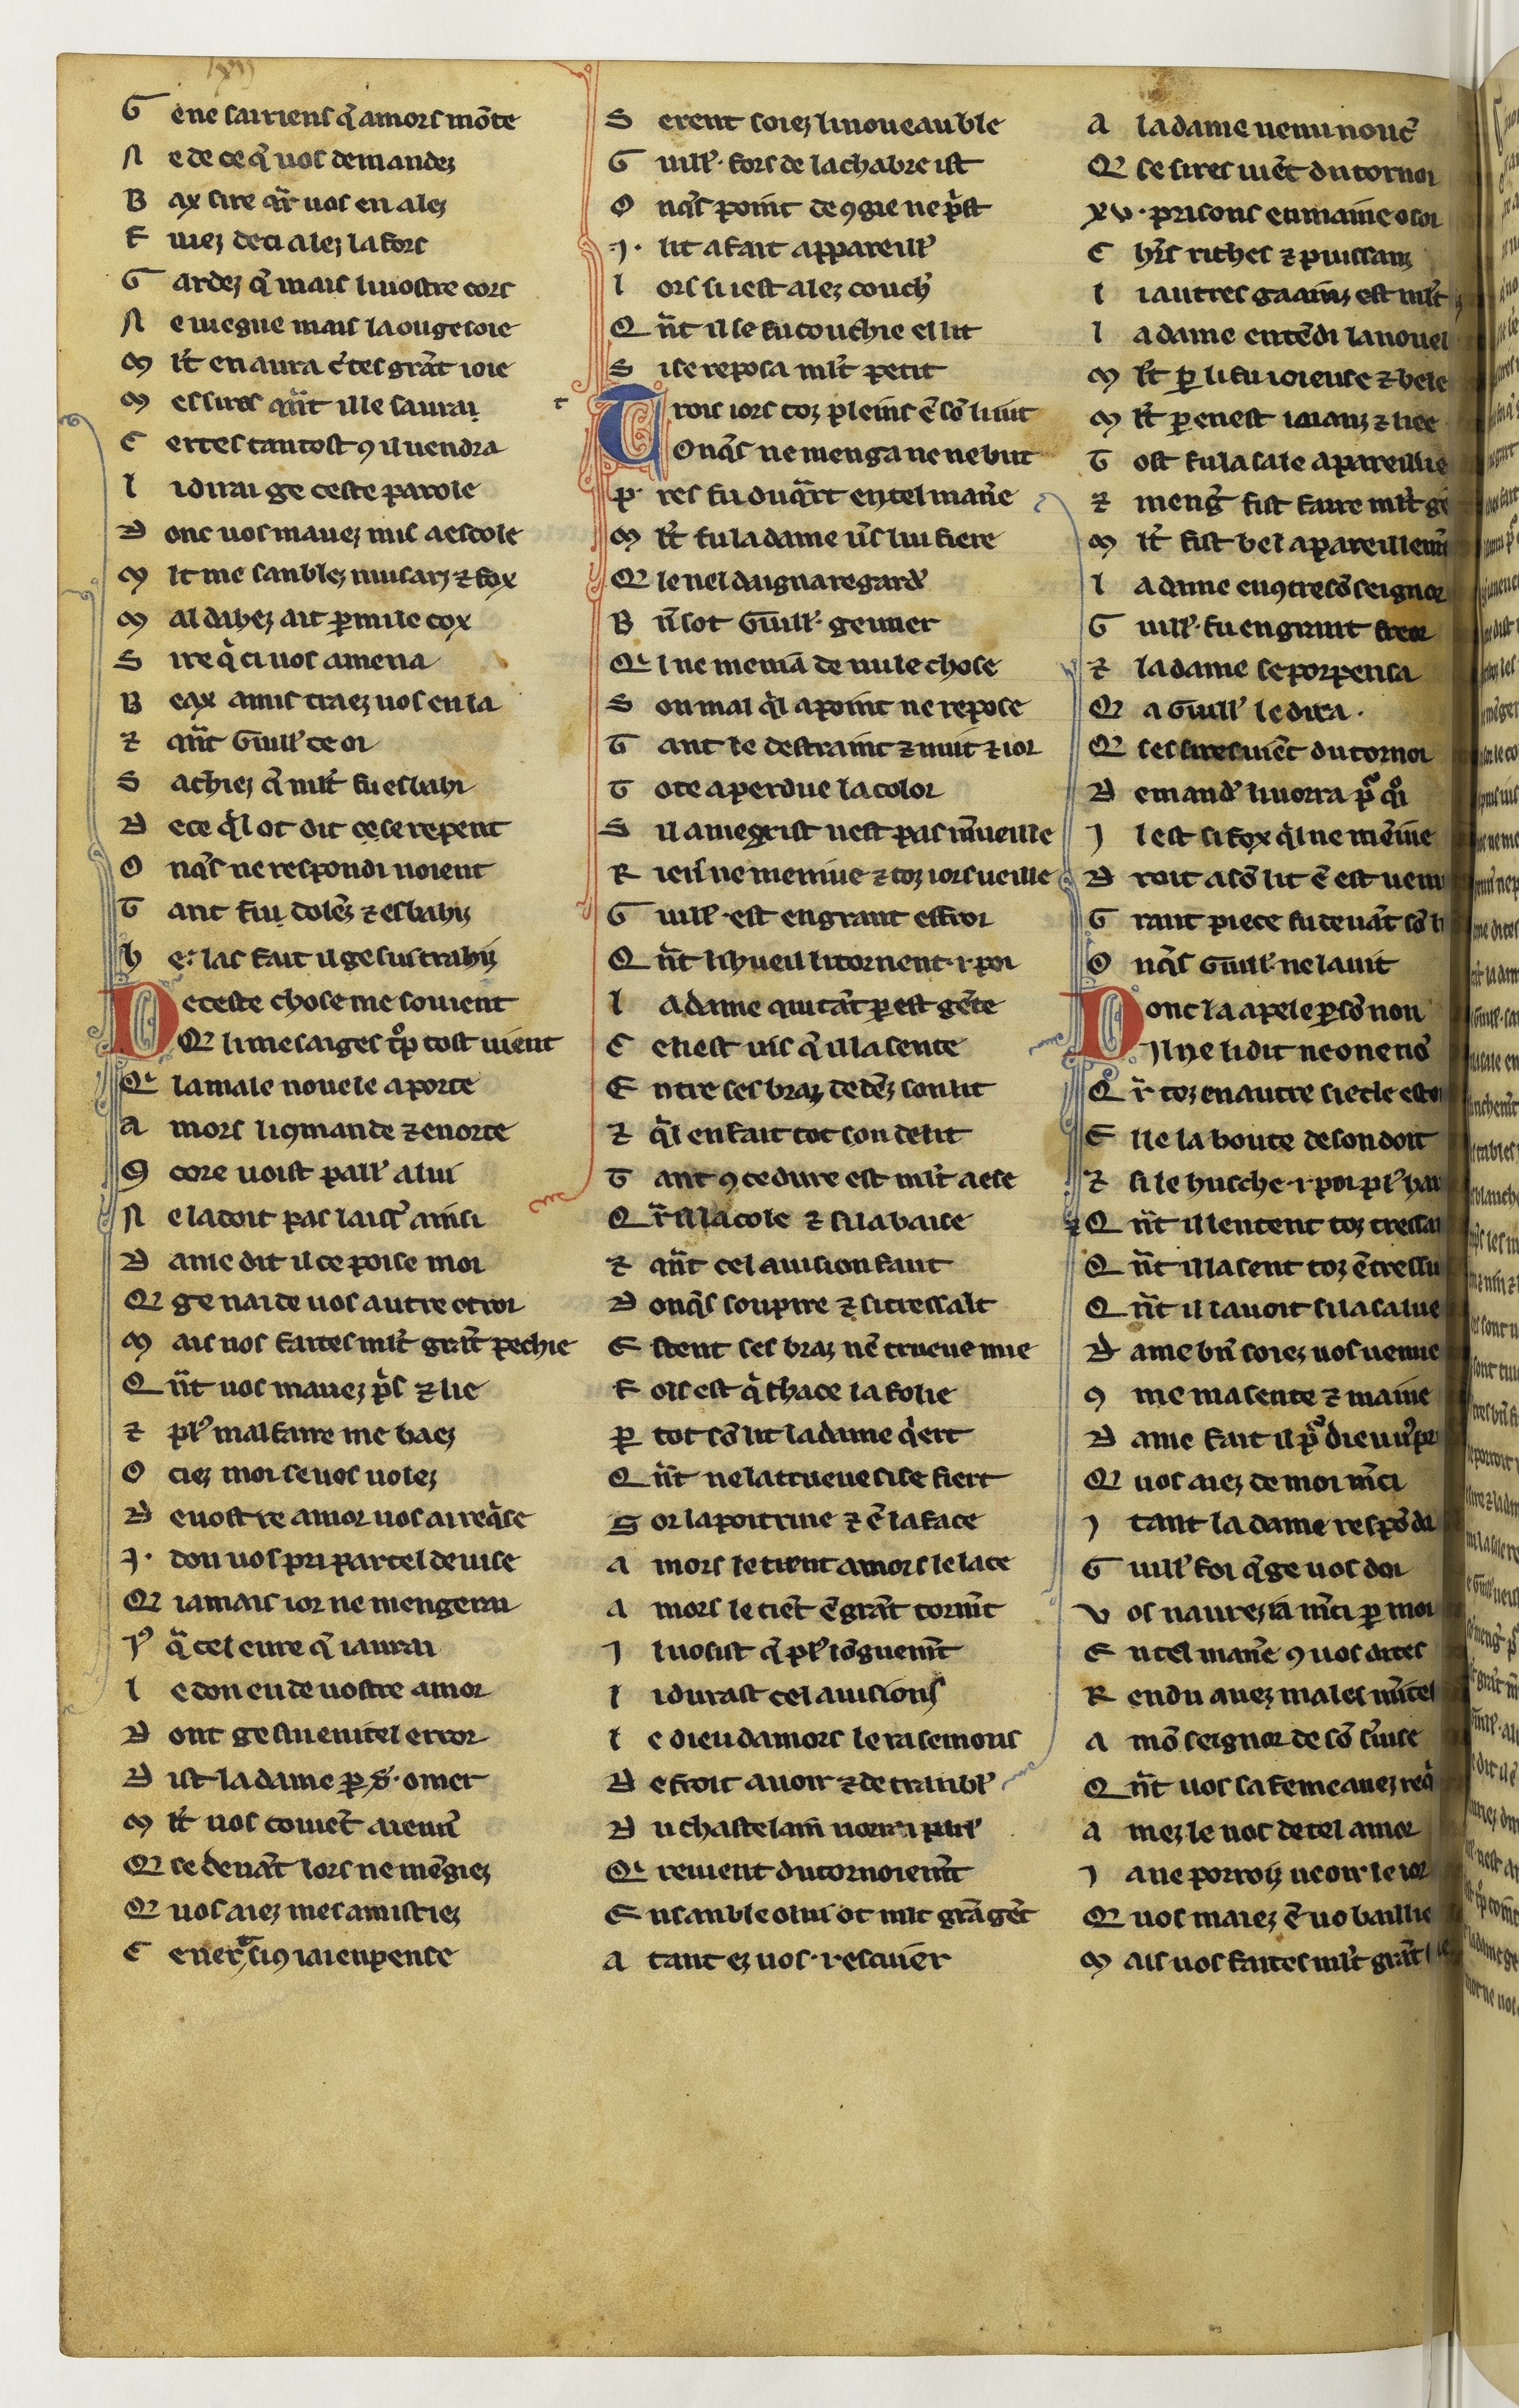 G ene sai riens q̃ amors mõte
N e de ce q̃ uos demandez
B ax sire q̃r uos en alez
F uiez deci alez la fors
G ardez q̃ mais li uostre cors
N e uiegne mais la ou ge soie
M lt̃ en aura c̃tes grãt ioie
M es sires q̃nt il le saurai
C ertes tantost ꝯ il uendra
L i dirai ge ceste parole
D onc uos mauez mis a escole
M lt me sanblez musarz ⁊ fox
M al dahez ait ꝑ mile cox
S ire q̓ ci uos amena
B eax amis traez uos en la
⁊ q̃nt Guill̃ ce oi
S achiez q̃ mlt̃ fu esbahi
D e ce q̓l ot dit ce se repent
O nq̃s ne respondi noient
T ant fu dolẽz ⁊ esbahiz
h e: las fait il ge sui trahiz
D e ceste chose me souient
Q̵ li mesaiges t̓p tost uient
Q̵ la male nouele aporte
A mors li ꝯmande ⁊ enorte
9 core uoist ꝑall̃ a lui
N e la doit pas laiss̃ ainsi
D ame dit il ce poise moi
Q̵ ge nai de uos autre otroi
M ais uos faites mlt̃ grãt pechie
Q ñt uos mauez p̓s ⁊ lie
⁊ pl᷒ mal faire me baez
O ciez moi se uos uolez
D e uostre amor uos ai req̓se
.I. don uos pri par tel deuise
Q̵ iamais ior ne mengerai
I᷒ q̃ cel eure q̃ iaurai
L e don eu de uostre amor
D ont ge sui en itel error
D ist la dame ꝑ s̃. omer
M lt̃ uos couiẽt a ieun̄
Q̵ se deuãt lors ne mẽgiez
Q̵ uos aiez mes amistiez
C e nert̃ si ꝯ iai en pense
S erent soiez li noueau ble
G uill̃. fors de la chãbre ist
O nq̃s point de ꝯgie ne p̓st
.I. lit a fait appareill̃
L ors si est alez couch̃
Q ñt il se fu couchie el lit
S i se reposa mlt̃ petit
T rois iors toz pleins ẽ sõ lit iut
O nq̃s ne menga ne ne but
P res fu du q̃rt en tel man̓e
M lt̃ fu la dame ũs lui fiere
Q̵ le nel daigna regard̃
B ñ sot Guill̃. geuner
Q̵ l ne meniã de nule chose
S on mal q̓l a point ne repose
T ant le destraint ⁊ nuit ⁊ ior
T ote a perdue la color
S il amegrist nest pas m̃ueille
R iens ne meniue ⁊ toz iors ueille
G uill̃. est en grant esfroi
Q ñt li hueil li tornent .i. poi
L a dame qui tãt ꝑ est gẽte
C e li est uis q̃ il la sente
E ntre ses braz dedẽz son lit
⁊ q̓l en fait tot son delit
T ant ꝯ ce dure est mlt̃ a ese
Q̃r il la cole ⁊ si la baise
⁊ q̃nt cel auision faut
D onq̃s soupire ⁊ si tressalt
E stent ses braz nẽ trueue mie
F ols est q̓ chace la folie
ꝑ tot sõ lit la dame q̓ert
Q ñt ne la trueue si se fiert
S or la poitrine ⁊ ẽ la face
A mors le tient amors le lace
A mors le tiẽt ẽ grãt tormẽt
I l uosist q̃ pl᷒ lõguemẽt
L i durast cel auisions
L e dieu damors le ra semons
D e froit auoir ⁊ de tranbl̃
D u chastelain uorrai parl̃
Q̵ reuient du tornoiemẽt
E nsanble o lui ot mlt grãt gẽt
A tant ez uos .i. escuier
A la dame uenu noñc̃
Q̵ ses sires uiẽt du tornoi
XV. prisons en maine o soi
C hr̃s riches ⁊ puissanz
L i autres gaainz est mlt̃
L a dame entẽdi la nouel
M lt̃ ꝑ li fu ioieuse ⁊ bele
M lt̃ ꝑ en est ioianz ⁊ liee
T ost fu la sale apareillie
⁊ meng̃ fist faire mlt̃
M lt̃ fist bel apareillem̃
L a dame en ꝯtre sõ seignor
G uill̃. fu en grant freor
⁊ la dame se porpensa
Q̵ a Guill̃ le dira.
Q̵ ses sires uiẽt du tornoi
D emand̃ li uorra p̃ q̓i
I l est si fox q̓l ne mẽiue
D roit a sõ lit ẽ est uenu
G rant piece fu deuãt sõ
O nq̃s Guill̃. ne la uit
D onc la apele ꝑ sõ non
I l ne li dit ne o ne nõ
Q̃r toz en autre siecle
E lle la boute de son doit
⁊ si le husche .i. poi pl᷒
Q ñt il lentent toz tressa
Q ñt il la sent toz ẽtressu
Q ñt il la uoit si la salue
D ame bñ soiez uos uenue
9 me ma sente ⁊ maiue
D ame fait il p̃ dieu
Q̵ uos aiez de moi m̃ci
I tant la dame respõdi
G uill̃ foi q̃ ge uos doi
V os naurez ia m̃ci ꝑ moi
E n tel man̓e ꝯ uos dites
R endu auez males
A mõ seignor de sõ s̃uise
Q ñt uos sa feme auez req̓
A mez le uos de tel amor
I a ne porroiz ueoir le ior
Q̵ uos maiez ẽ uo baillie
M ais uos faites mlt̃ grãt